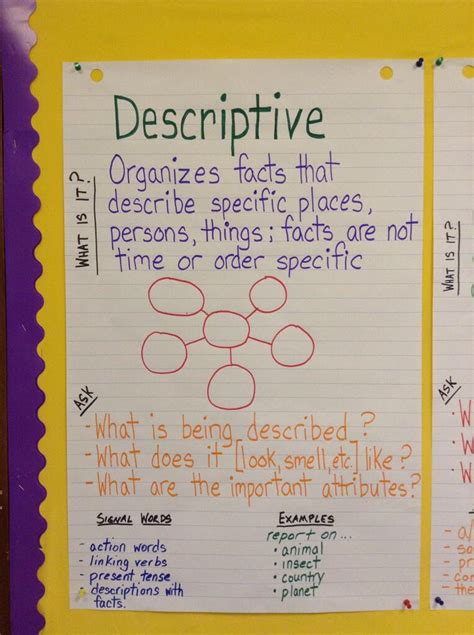 Descriptive
WHAT IS IT?
Organizes facts that
describe specific places,
persons, things; facts are not
time or order specific
ASK
- What is being described?
- What does it [look, smell, etc.] like?
- What are the important attributes?
SIGNAL WORDS
- action words
- linking verbs
- present tense
- descriptions with
facts.
EXAMPLES
report on...
• animal
• insect
• country
• planet
WHAT IS IT?
ASK